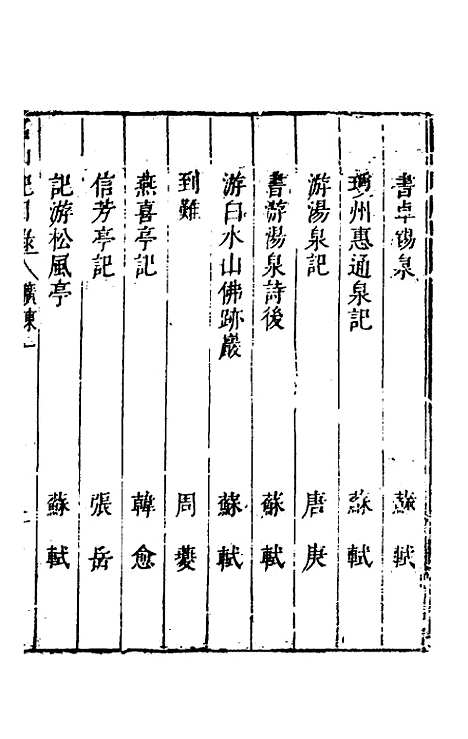 書卓錫泉　蘇軾
瓊州惠通泉記　蘇軾
游湯泉記　唐庚
書游湯泉詩後　蘇軾
游白水山佛跡巖　蘇軾
到難　周夔
燕喜亭記　韓愈
信芳亭記　張岳
記游松風亭　蘇軾
名山記目錄　廣東一